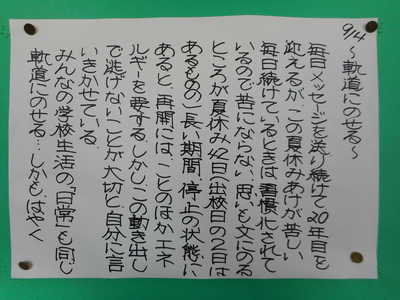 9/4 〜軌道にのせる〜
毎日メッセージを送り続けて20年目を
迎えるが、この夏休みあけが苦しい
毎日続けているときは習慣化されて
いるので苦にならない、思いを文にのる
ところが夏休み42日、出校日の2日は
あるものの、長い期間、停止の状態に
あると、再開には、ことのほかエネ
ルギーを要する しかし、この動き出し
で逃げないことが大切と自分に言
いきかせている
みんなの学校生活の「日常」も同じ
軌道にのせる…しかもはやく